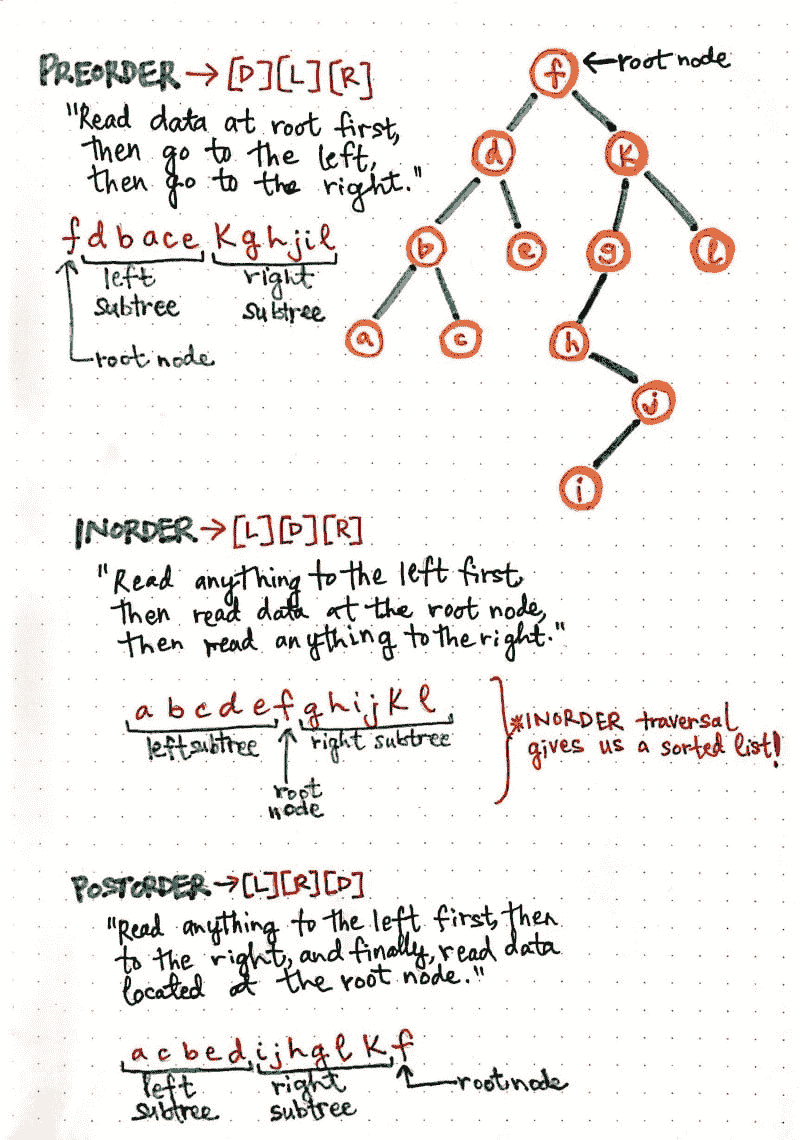 PREORDER → [D][L][R]
"Read data at root first,
then go to the left,
then go to the right."
f d b a c e K g h j i l
left subtree
right subtree
root node
← root node
f
d
K
b
e
g
l
a
c
h
j
i
INORDER → [L][D][R]
"Read anything to the left first
then read data at the root node,
then read anything to the right."
a b c d e f g h i j K l
left subtree
right subtree
root node
*INORDER traversal
gives us a sorted list!
POSTORDER → [L][R][D]
"Read anything to the left first, then
to the right, and finally, read data
located at the root node."
a c b e d i j h g l K f
left subtree
right subtree
root node